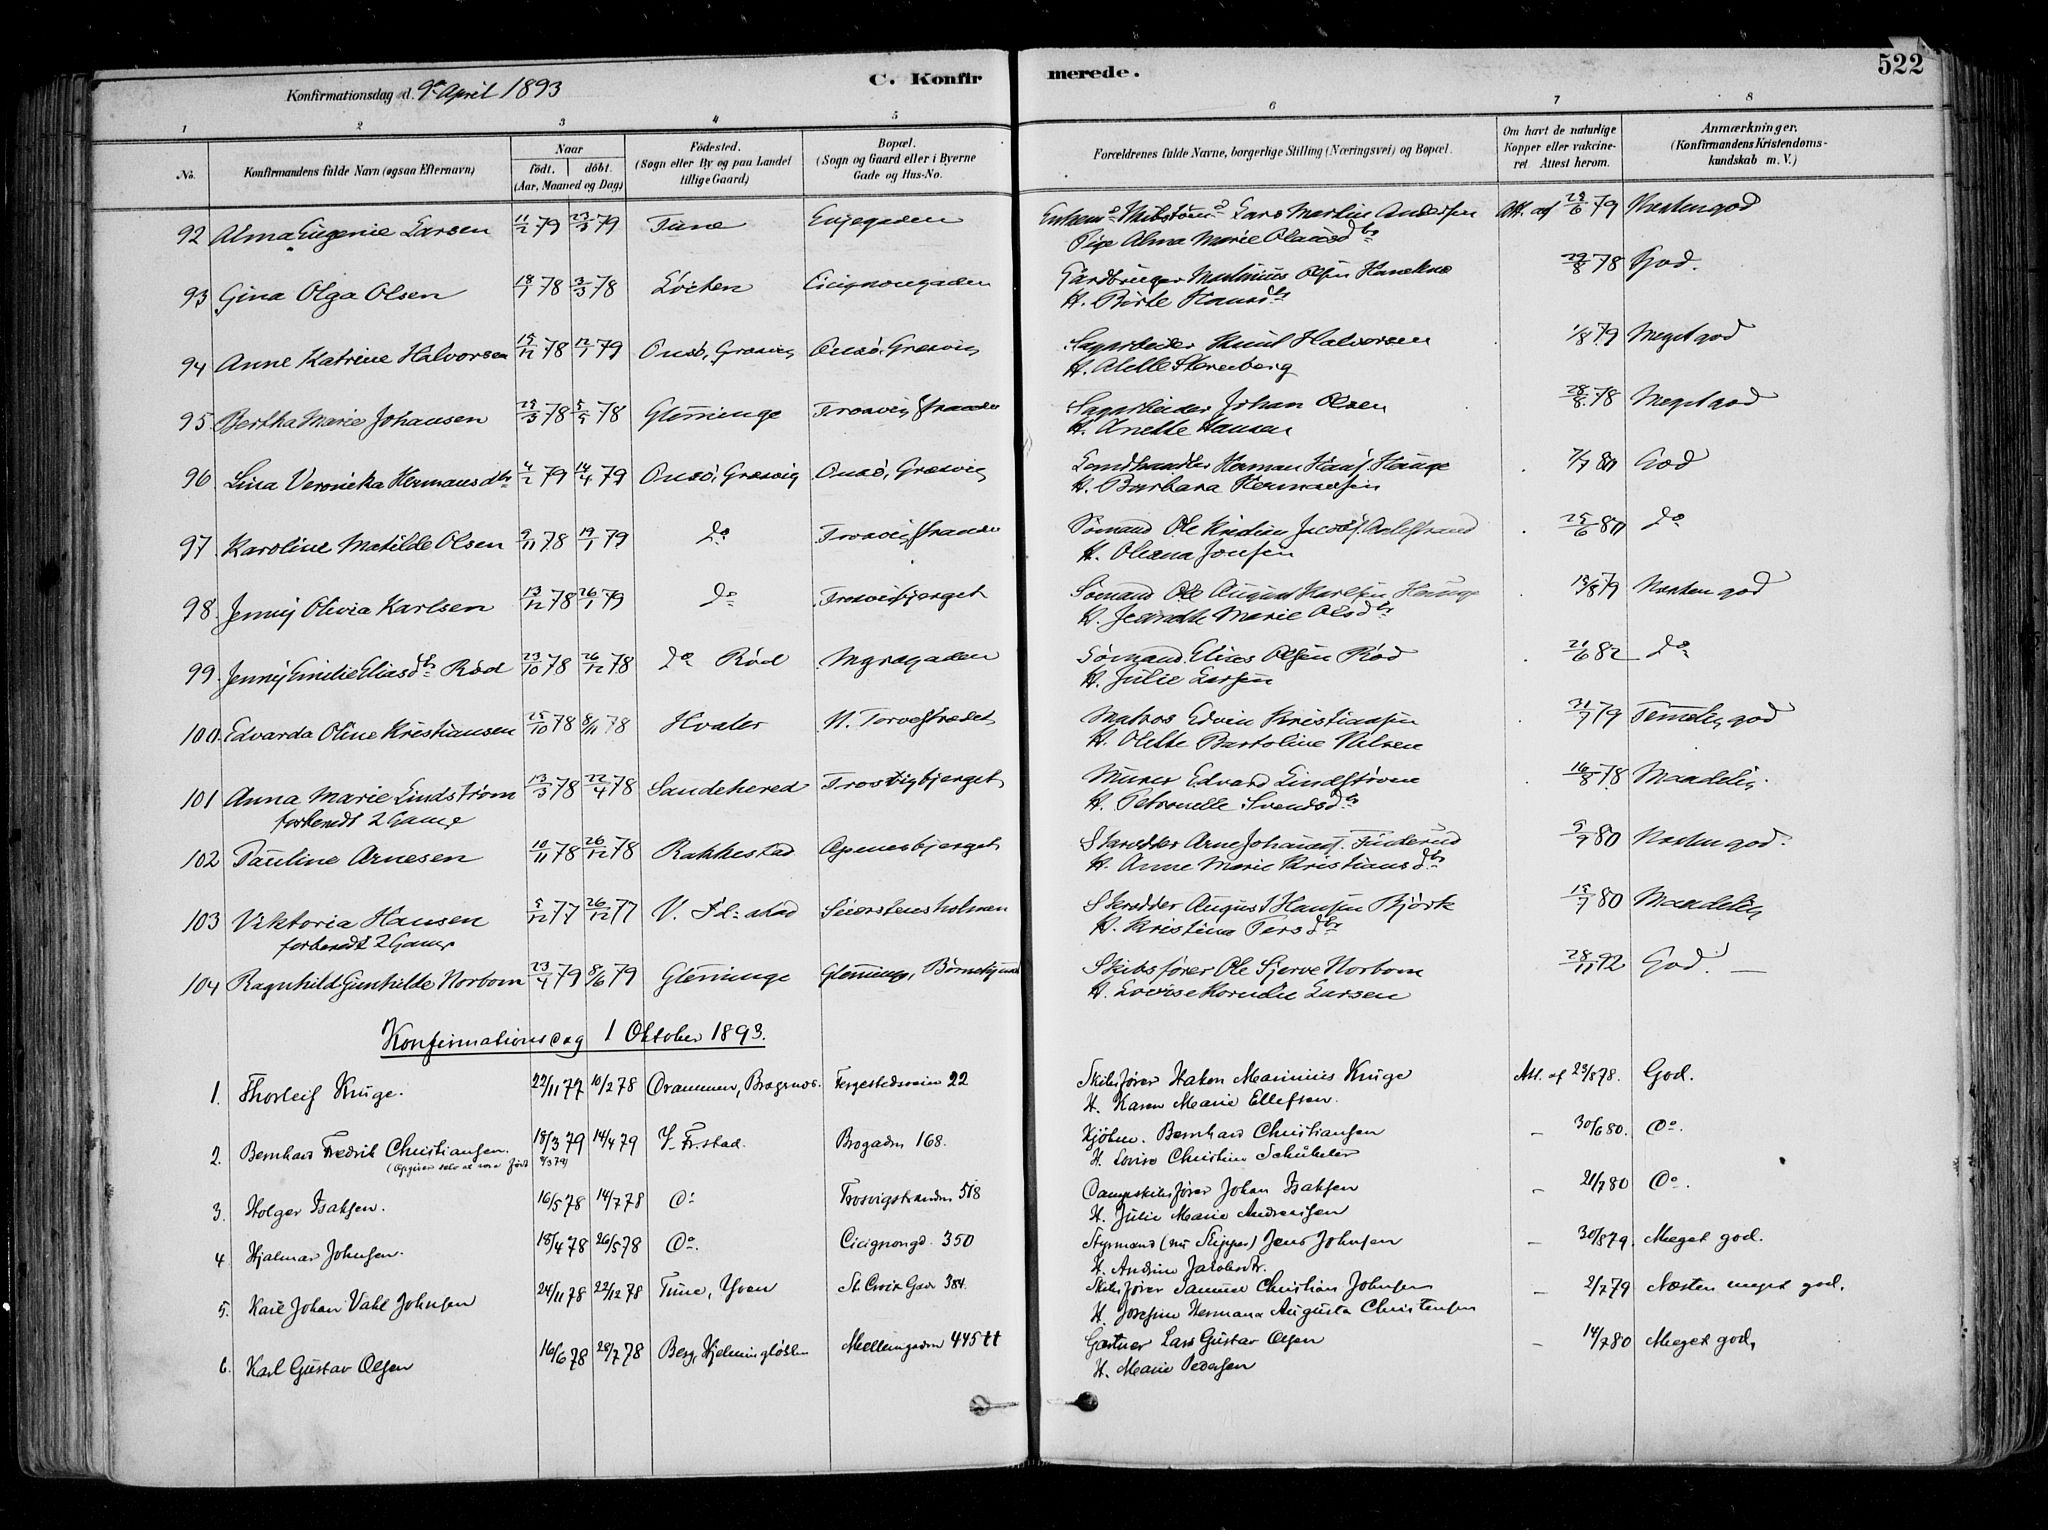 C. Konfirmerede.
522
Konfirmationsdag d. 9de April 1893
1 2 3 4 5 6 7 8
No.
Konfirmandens fulde Navn (ogsaa Efternavn)
Naar
födt. döbt.
(Aar, Maaned og Dag)
Födested.
(Sogn eller By og paa Landet
tillige Gaard)
Bopæl.
(Sogn og Gaard eller i Byerne
Gade og Hus-No.
Forældrenes fulde Navne, borgerlige Stilling (Næringsvei) og Bopæl.
Om havt de naturlige
Kopper eller vakcine-
ret Attest herom.
Anmærkninger.
(Konfirmandens Kristendoms-
kundskab m. V.)
92 Alma Eugenie Larsen 11/2 79 23/3 79 Tune Enhems Lars Martin Andersen Att. af 29/6 79 Næsten god
Pige Alma Marie Olausdtr
93 Gina Olga Olsen 18/1 78 3/3 78 Löiten Cicignongaden Gårdbruger Martinius Olsen 29/8 78 God.
H. Birte Hansdtr
94 Anne Katrine Halvorsen 15/12 78 12/1 79 Onsö, Græsvig Onsö, Græsvig Sagarbeider Knut Halvorsen 1/8 79 Meget god
H. Alette Stenberg
95 Bertha Marie Johansen 29/3 78 5/5 78 Glemminge Trosvigstranden Sagarbeider Johan Olsen 28/8 78 Meget god
H. Anette Hansen
96 Lina Veronika Hermansdtr 4/2 79 14/4 79 Onsö, Græsvig Onsö, Græsvig Landhandler Herman Hansf. Hauge 7/7 80 God
H. Barbara Hermansen
97 Karoline Matilde Olsen 9/11 78 19/1 79 Do Trosvigstranden Sömand Ole Kristian 25/6 80 Do
H. Oleana Jonsen
98 Jenny Olivia Karlsen 13/12 78 26/1 79 Do Trosvigbjerget Sömand Ole August Karlsen Hauge 13/8 79 Næsten god
H. Jeanette Marie Olsdtr
99 Jenny Emilie Eliasdtr Röd 23/10 78 26/12 78 Do Röd Nygaden Sömand Elias Olsen Röd 21/6 82 Do
H. Julie Larsen
100 Edvarda Oline Kristiansen 25/10 78 8/11 78 Hvaler N. Torvestrædet Matros Edvin Kristiansen 31/7 79 Temelig god
H. Olette Bartoline Nilsen
101 Anna Marie Lindström 13/3 78 22/4 78 Sandehered Trosvigbjerget Murer Edvard Lindström 16/8 78 Maadelig.
forberedt 2 Gange H. Petronelle Svendsdtr
102 Pauline Arnesen 10/11 78 26/12 78 Rakkestad Apenesbjerget Skrædder Arne Johansf. Finderud 9/9 80 Næsten god.
H. Anne Marie Kristiansdtr
103 Viktoria Hansen 5/12 77 26/12 77 V. Fr:stad Skrædder August Hansen Björk 15/7 80 Maadelig
forberedt 2 Gange H. Kristine Persdtr
104 Ragnhild Gunhilde Norbom 23/4 79 8/6 79 Glemminge Glemminge, Skibsförer Ole Sjerve Norbom 28/11 92 God. —
H. Lovise Kornelie Larsen
Konfirmationsdag 1 Oktober 1893.
1. Thorleif Kruge. 22/11 77 10/2 78 Drammen, Bragernes. Fergestedsveien 22 Skibsförer Haken Marinius Kruge Att. af 23/8 78. God.
H. Karen Marie Ellefsen.
2. Bernhard Fredrik Christiansen. 18/3 79 14/4 79 V. Fr.stad. Brogaden 168. Kjöbm. Bernhard Christiansen — 30/6 80. Do.
(Opgiver selv at være född 8/3 79) H. Lovise Christine Schübeler
3. Holger Isaksen. 16/5 78 14/7 78 Do Trosvigstranden 518 Dampskibsförer Johan Isaksen — 21/7 80 Do.
H. Julie Marie Andreassen
4 Hjalmar Johnsen. 18/4 78 26/5 78 Do. Cicignongd. 350 Styrmand (nu Skipper) Jens Johnsen — 30/8 79. Meget god.
H. Andrine Jacobsdtr.
5. Karl Johan Vahl Johnsen 24/11 78 22/12 78 Tune, Yven St. Croix Gade 384. Skibsförer Samuel Christian Johnsen — 2/7 79 Næsten meget god.
H. Josefine Hermana Augusta Christensen
6. Karl Gustav Olsen 16/6 78 28/7 78 Berg, Mellemgaden 445 tt Gartner Lars Gustav Olsen — 14/7 80 Meget god,
H. Marie Pedersen